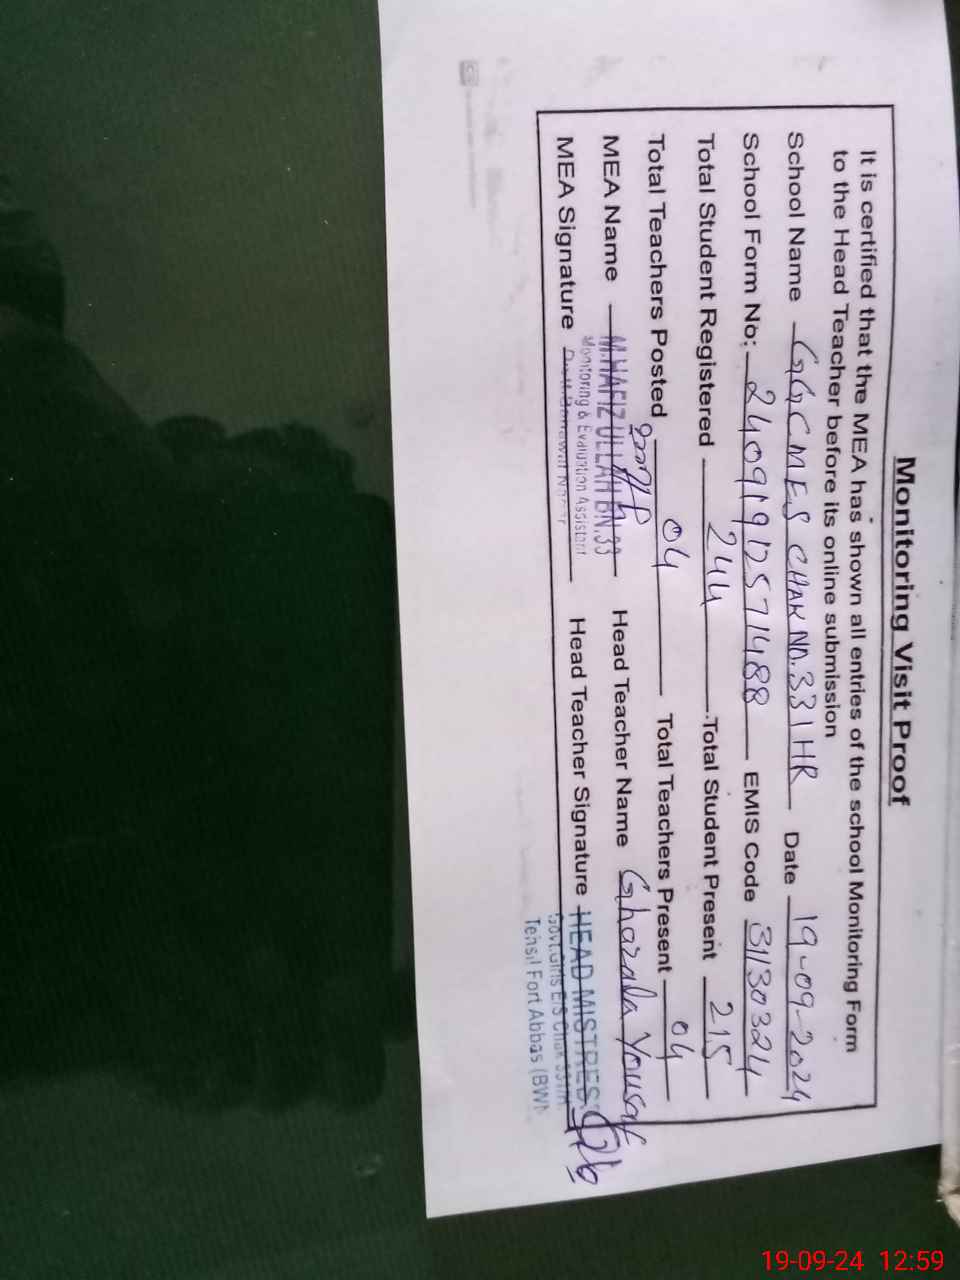 Monitoring Visit Proof
It is certified that the MEA has shown all entries of the school Monitoring Form
to the Head Teacher before its online submission
School Name GGCMES CHAK NO.331HR Date 19-09-2024
School Form No: 24091912571488 EMIS Code 31130324
Total Student Registered 244 Total Student Present 215
Total Teachers Posted 04 Total Teachers Present 04
MEA Name M.HAFIZ ULLAH BN.33 Head Teacher Name Ghazala Yousaf
Monitoring & Evaluation Assistant
MEA Signature Head Teacher Signature HEAD MISTRESS
Govt.Girls E/S Chak
Tehsil Fort Abbas (BWN
19-09-24 12:59